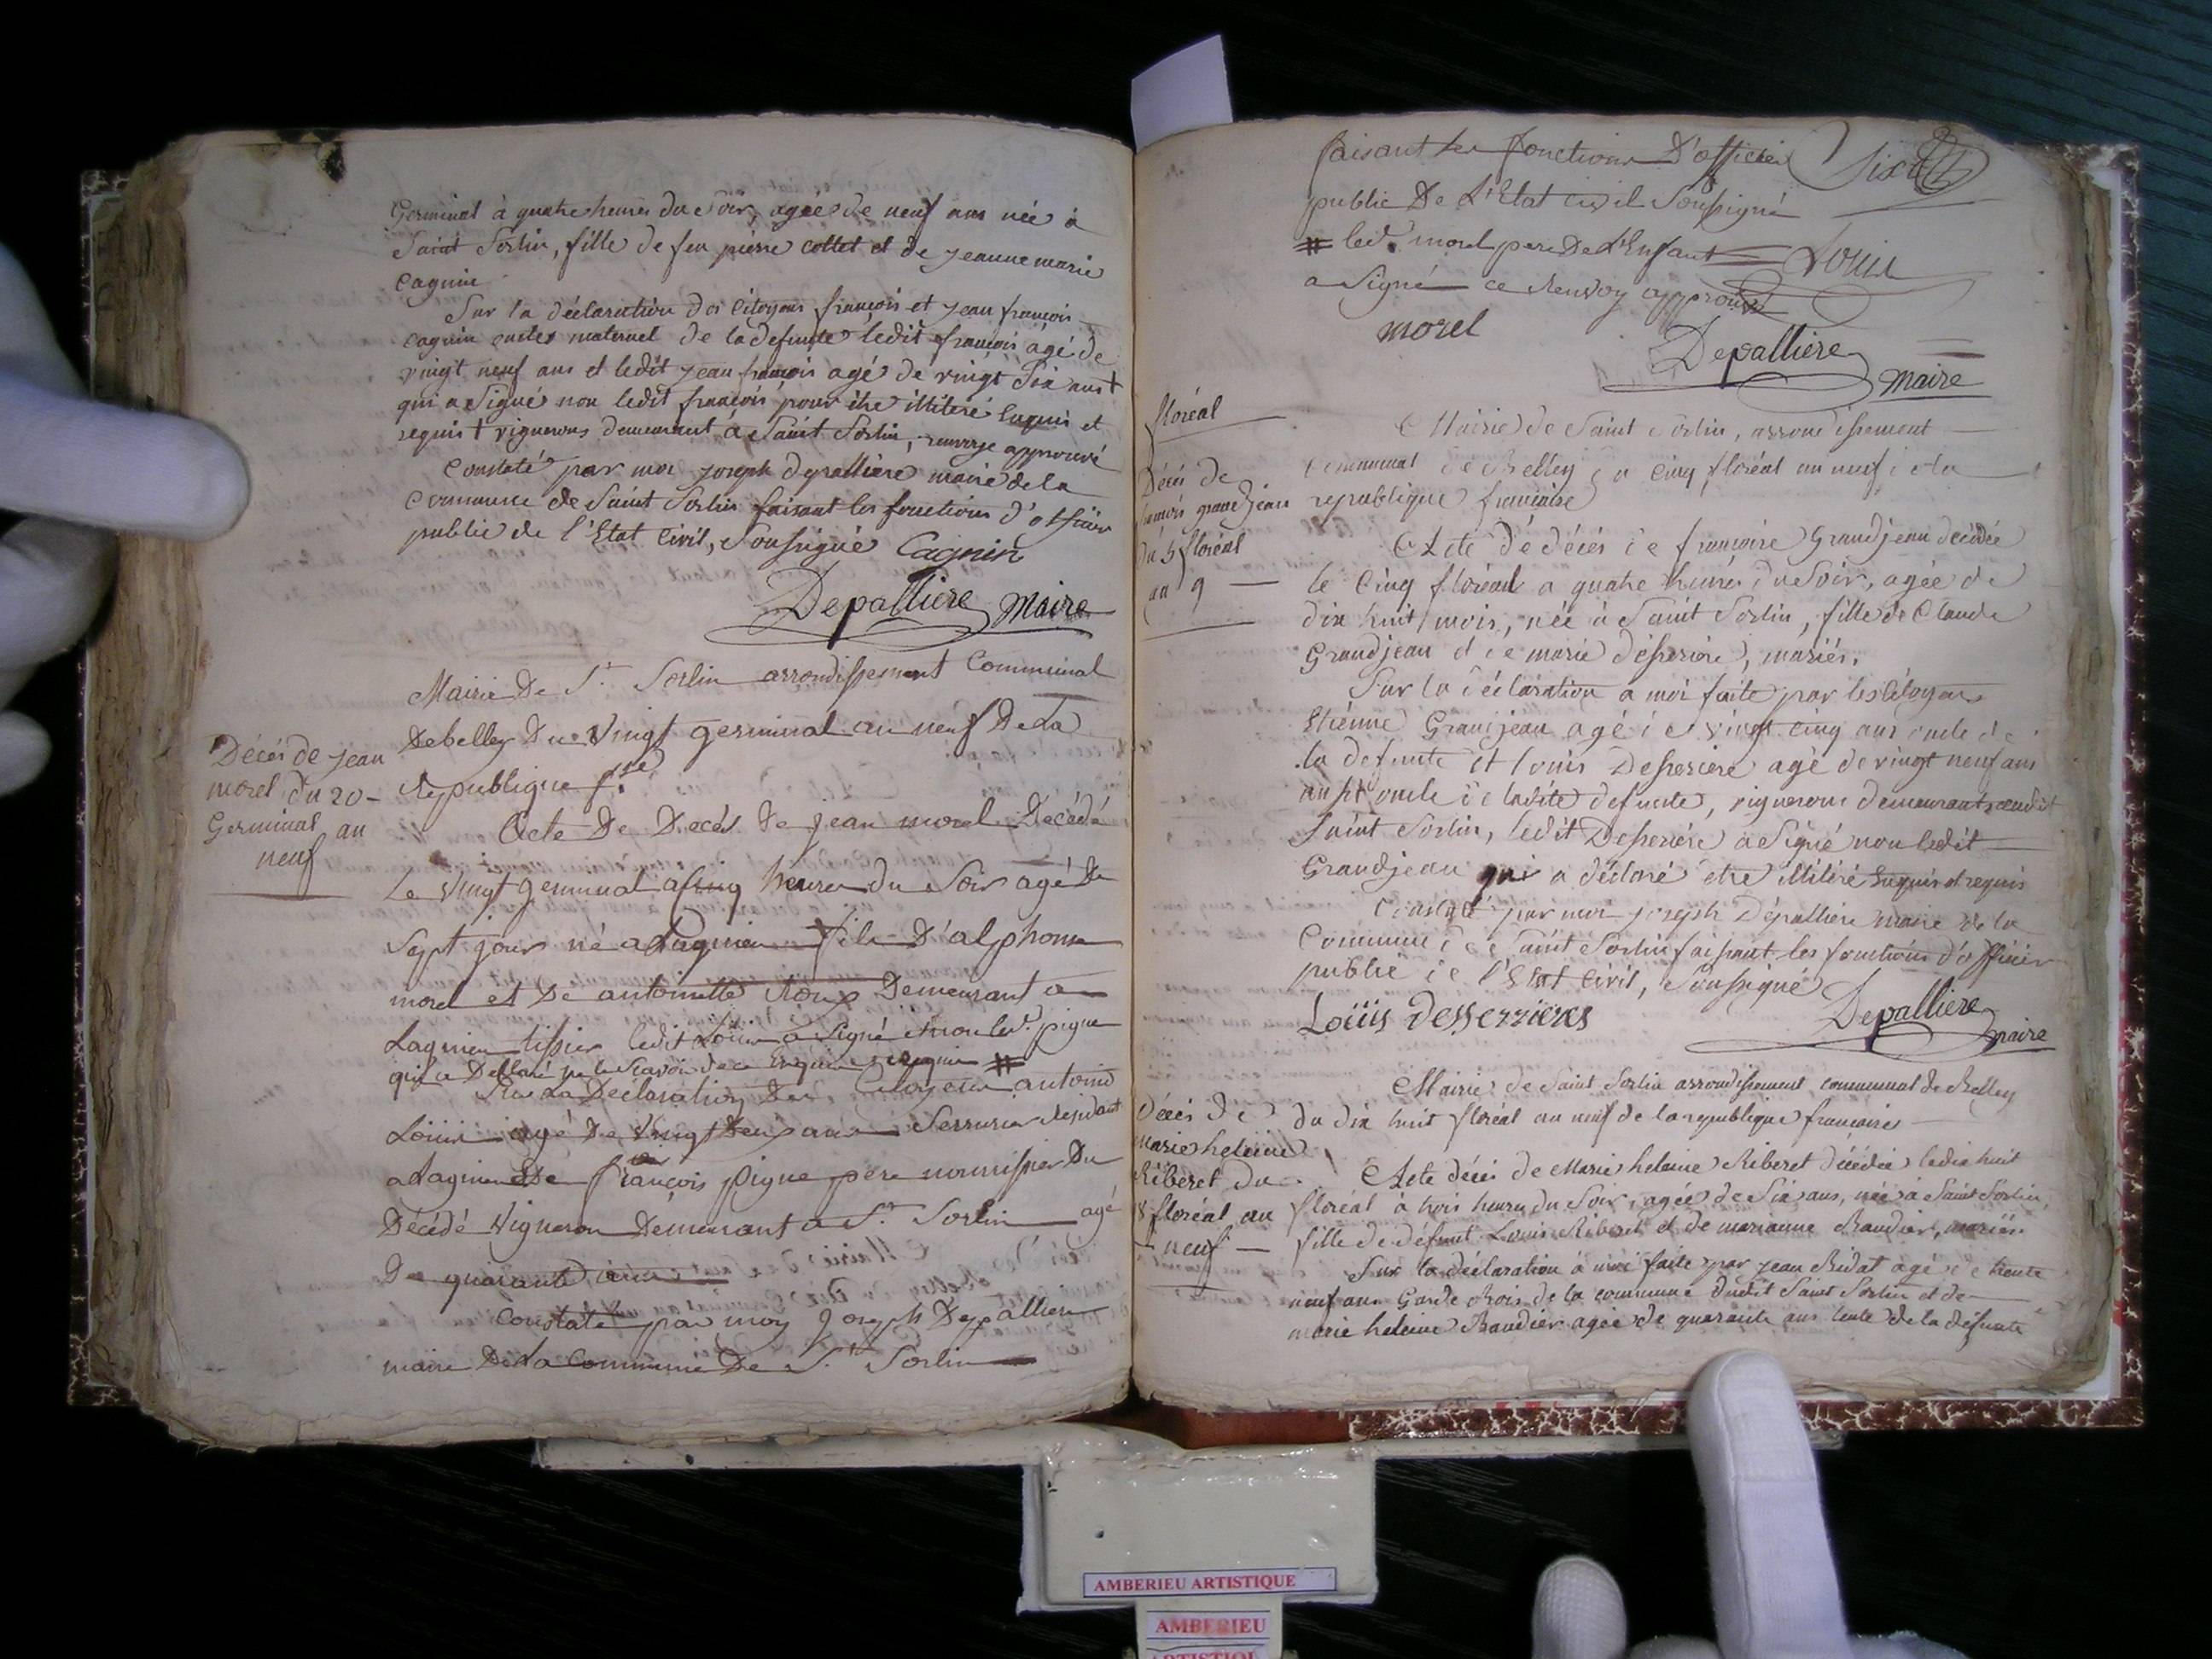 Germinal à quatre heures du Soir, agée de neuf ans née à
Saint Sorlin, fille de feu pierre collet et de jeanne marie
Cagnin
Sur la déclaration des Citoyens françois et jean françois
cagnin oncles maternel de la defunte ledit françois agé de
vingt neuf ans et ledit jean françois agé de vingt Six ans +
qui a Signé non ledit françois pour être illiteré Enquis et
requis + vignerons demeurant à Saint Sorlin, renvoye approuvé
Constaté par moi joseph depallière maire de la
Commune de Saint Sorlin faisant les fonctions d'officier
public de l'Etat Civil, Soussigné Cagnin
Depalliere maire
Mairie De St Sorlin arrondissement Communal
Debelley Du Vingt germinal an neuf De La
Republique f.se
Décès de jean
morel du 20 -
Germinal an
neuf
Acte De Decés de jean morel Decédé
Le Vingt germinal a Cinq heures du Soir agé De
Sept jour né a Lagnieu fils D'alphonse
morel et De antoinette Roux Demeurant a
Lagnieu tissier ledit Loüis a Signé et non led. pigne
qui a Dellaré ne le Scavoir de ce Enquis requis #
Sur La Déclaration Des Citoyens antoine
Loüis agé De Vingt Deux ans Serrurier Residant
a Lagnieu De françois pigne pere nourrissier Du
Décédé Vigneron Demeurant a St Sorlin agé
De quarante ans
Constaté par moy Joseph Depalliere
maire De La Commune De St Sorlin
faisant les fonctions D'officier Six
public De L'Etat Civil Soussigné
# led. morel pere De L'Enfant Louis
a Signé ce Renvoy approuvé
morel
Depalliere
maire
floréal
Mairie de Saint Sorlin, arrondissement
communal de Belley du cinq floréal an neuf de la
republique française
Décès de
françois grandjean
Du 5 floréal
an 9
Acte de décés de françoise Grandjean décédée
le Cinq floréal a quatre heures du Soir, agée de
dix huit mois, née à Saint Sorlin, fille de Claude
Grandjean et de marie desseriere, mariés.
Sur la déclaration a moi faite par les Citoyens
Etienne Grandjean agé de vingt cinq ans oncle de
la defunte et louis Desseriere agé de vingt neuf ans
aussi oncle de ladite defunte, vignerons demeurants audit
Saint Sorlin, ledit Desseriére a Signé non ledit
Grandjean qui a déclaré etre illiteré Enquis et requis
Constaté par moi joseph Depalliere maire de la
Commune de Saint Sorlin faisant les fonctions d'officier
public de l'Etat Civil, Soussigné
Loüis Desserrieres Depalliere
maire
Mairie de Saint Sorlin arrondissement communal de Belley
du dix huit floréal an neuf de la republique française
Décès de
marie heleine
Riberet du
18 floréal an
neuf
Acte décés de Marie helaine Riberet décédée ledix huit
floréal à trois heures du Soir, agée de Six ans, née à Saint Sorlin
fille de défunt Louis Riberet et de marianne Baudier, mariés.
Sur la déclaration à moi faite par jean Bidat agé de trente
neuf ans Garde Bois de la commune dudit Saint Sorlin et de
marie heleine Baudier agée de quarante ans tente de la défunte
AMBERIEU ARTISTIQUE
AMBERIEU
ARTISTIQUE